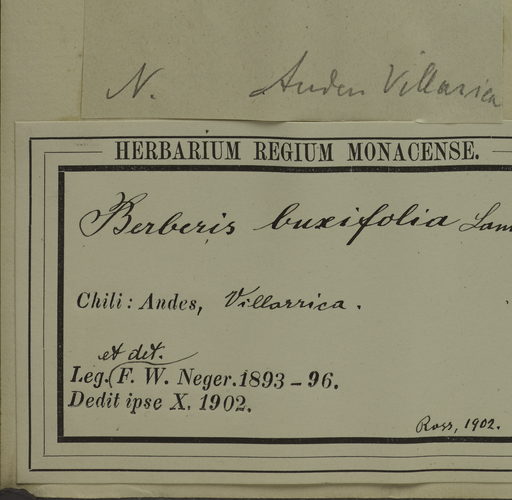 N. Anden Villarica
HERBARIUM REGIUM MONACENSE.
Berberis buxifolia Lam
Chili: Andes, Villarrica.
et det.
Leg. (F. W. Neger. 1893-96.
Dedit ipse X. 1902.
Ross, 1902.